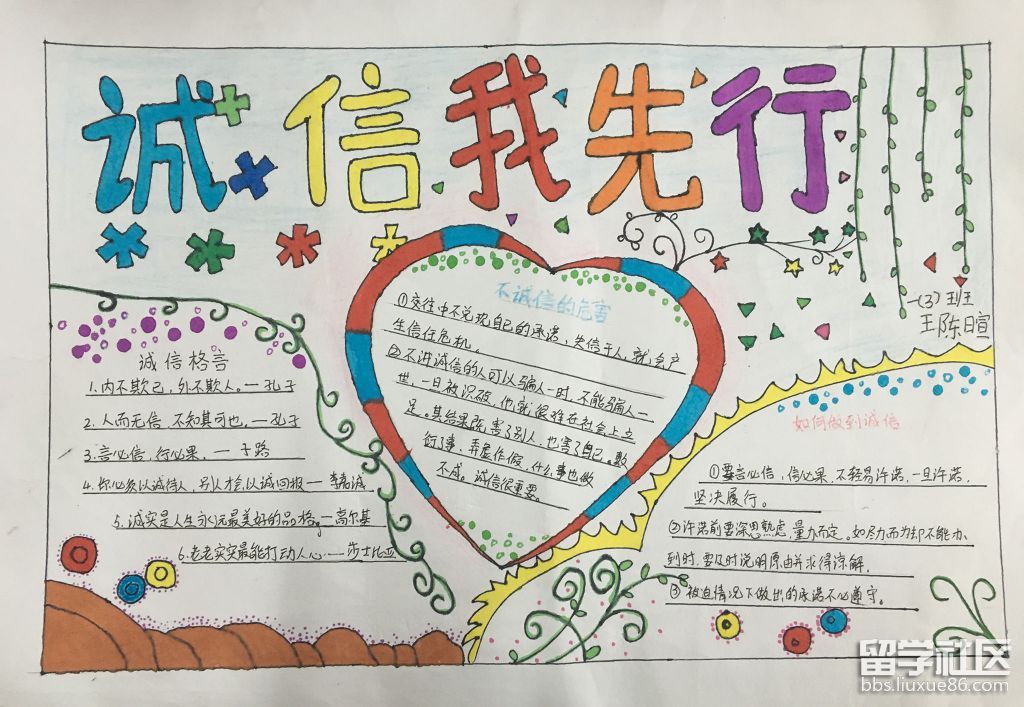 诚信我先行
一(3)班
王陈日宣
诚信格言
1.内不欺己,外不欺人。—孔子
2.人而无信,不知其可也,—孔子
3.言必信,行必果,— 子路
4.你必须以诚待人,别人才会以诚回报— 李嘉诚
5.诚实是人生永远最美好的品格。—高尔基
6.老老实实最能打动人心.—莎士比亚
不诚信的危害
①交往中不兑现自己的承诺,失信于人,就会产
生信任危机,
②不讲诚信的人可以骗人一时,不能骗人一
世,一旦被识破,他就很难在社会上立
足。其结果既害了别人,也害了自己。敷
衍了事,弄虚作假,什么事也做
不成。诚信很重要。
如何做到诚信
①要言必信,信必果,不轻易许诺,一旦许诺,
坚决履行。
②许诺前要深思熟虑,量力而定。如尽力而为却不能办
到时,要及时说明原由并求得谅解,
③被迫情况下做出的承诺不必遵守。
留学社区
bbs.liuxue86.com